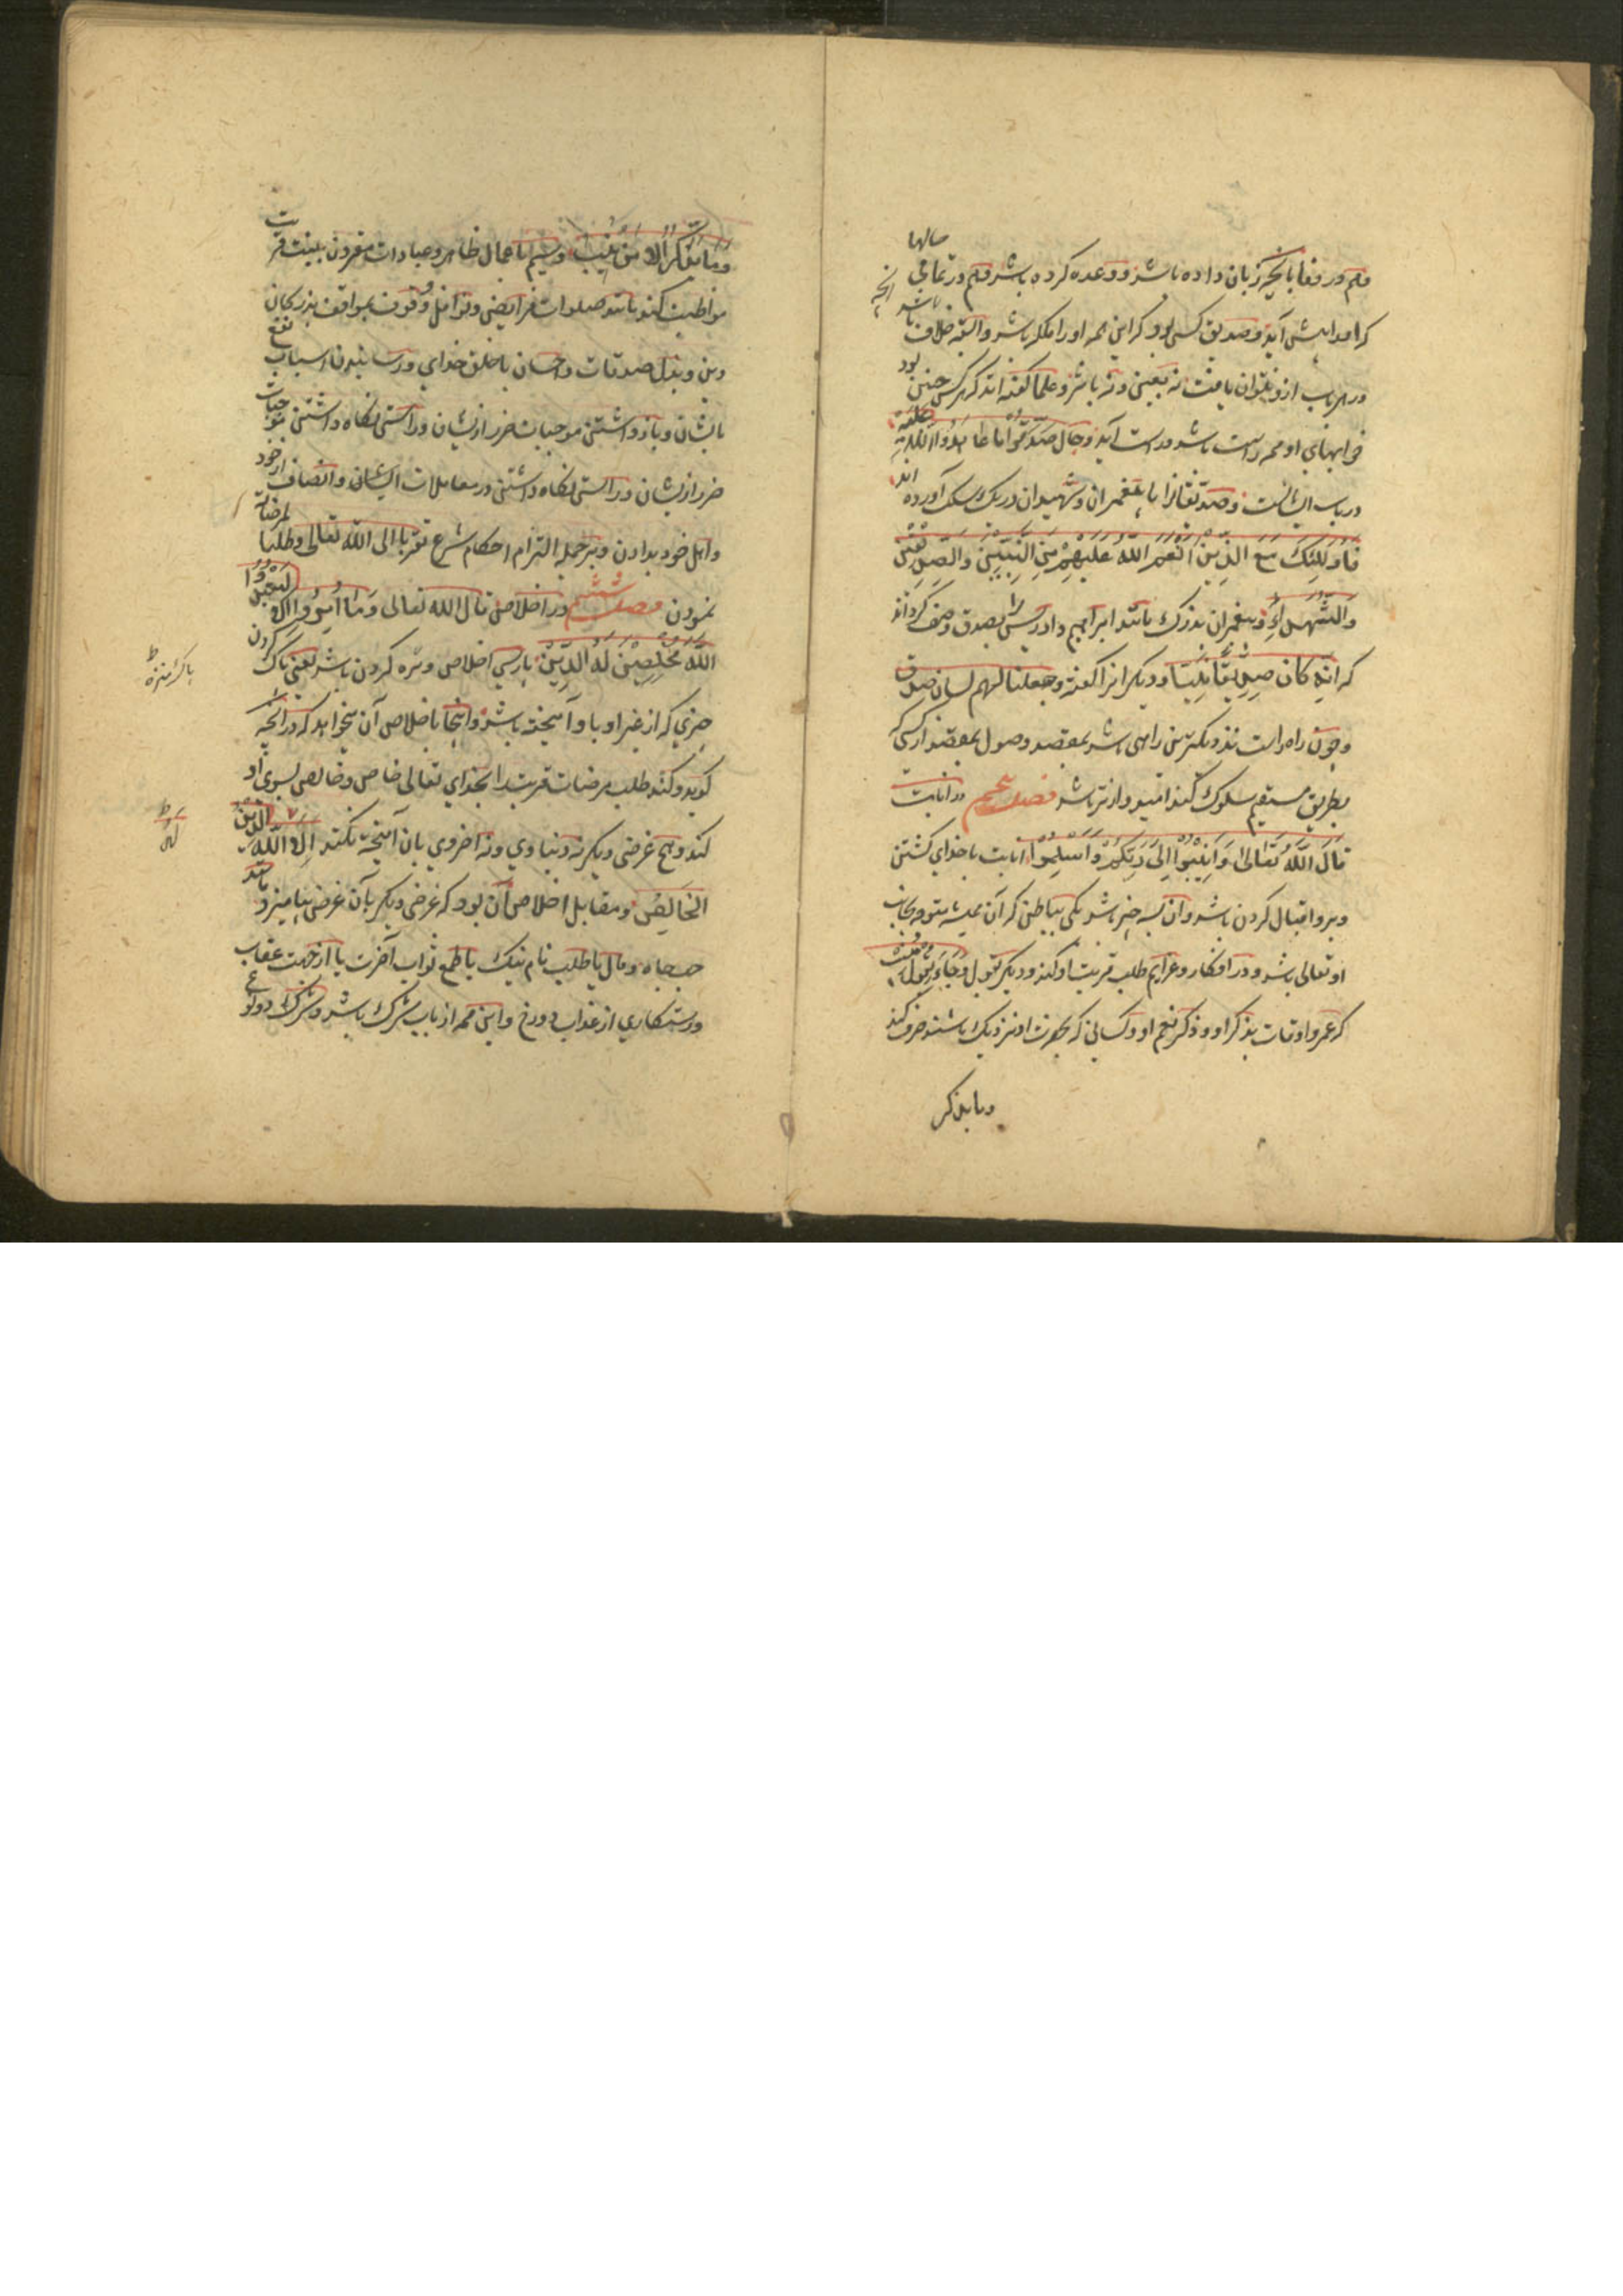 وهم در وفا بانچه زبان داده باشد و وعده کرده باشد و هم در تمامی حالها
که او را پیش آید و صدیق کسی بود که این همه او را ملکه باشد و البته خلاف آنچه باشد
در هر باب ازو نتوان یافت نه بعین و نه باثر و علما گفته اند که هر کس چنین بود
خوابهای او همه راست باشد و راست آید رجال صدقوا ما عاهدوا الله علیه
در باب ایشانست و صدیقانرا با پیغمبران و شهیدان در یک سلک آورده اند
فاولئک مع الذین انعم الله علیهم من النبیین والصدیقین
والشهداء و پیغمبران بزرگ مانند ابراهیم و ادریس را بصدق وصف کرده اند
که انه کان صدیقا نبیا و دیگرانرا گفته وجعلنا لهم لسان صدق
و چون راه راست نزدیکترین راهی باشد بمقصد وصول بمقصد از کسی که
بطریق مستقیم سلوک کند امیدوارتر باشد فصل پنجم در انابت
قال الله تعالی وَاَنِیبُوا اِلی رَبِّکُمْ وَاَسْلِمُوا انابت با خدای گشتن
و برو اقبال کردن باشد و آن بسه چیز باشد یکی بباطن که آن همیشه متوجه بجانب
او تعالی باشد و در افکار و عزایم طلب قربت او کند و دیگر بقول وجاء بقلب منیب
که عمر و اوقات بذکر او و ذکر نعم او و کسانی که بحضرت او نزدیک باشند صرف کند
وما یتذکر
وما یتذکر الا من ینیب و سیم باعمال ظاهر و عبادات مقرون بنیت قربت
مواظبت کند مانند صلوات فرایض و نوافل و وقوف بمواقف بزرگان
دین و بذل صدقات و احسان با خلق خدای و رسانیدن اسباب نفع
بایشان و باز داشتن موجبات ضرر از یشان و راستی نگاه داشتن موجبات
ضرر ازیشان و راستی نگاه داشتن در معاملات ایشان و انصاف از خود
و اهل خود بدادن و بر جمله التزام احکام شرع تقربا الی الله تعالی وطلبا لمرضاته
نمودن فصل ششم در اخلاص قال الله تعالی وما امروا الا لیعبدوا
الله مخلصین له الدین پارسی اخلاص ویژه کردن باشد یعنی پاک کردن
چیزی که از غیر او با او آمیخته باشد و اینجا باخلاص آن میخواهد که هر آنچه
گوید و کند طلب مرضات قربت را بخدای تعالی خاص و خالص بسوی او
کند و هیچ غرضی دیگر نه دنیاوی و نه اخروی بان آمیخته نکند الا لله الدین
الخالص و مقابل اخلاص آن بود که غرضی دیگر بآن غرض بیامیزد مانند
حب جاه و مال یا طلب نام نیک یا طمع ثواب آخرت یا از جهت عقاب
و رستگاری از عذاب دوزخ و این همه از باب شرک باشد و شرک دو نوع